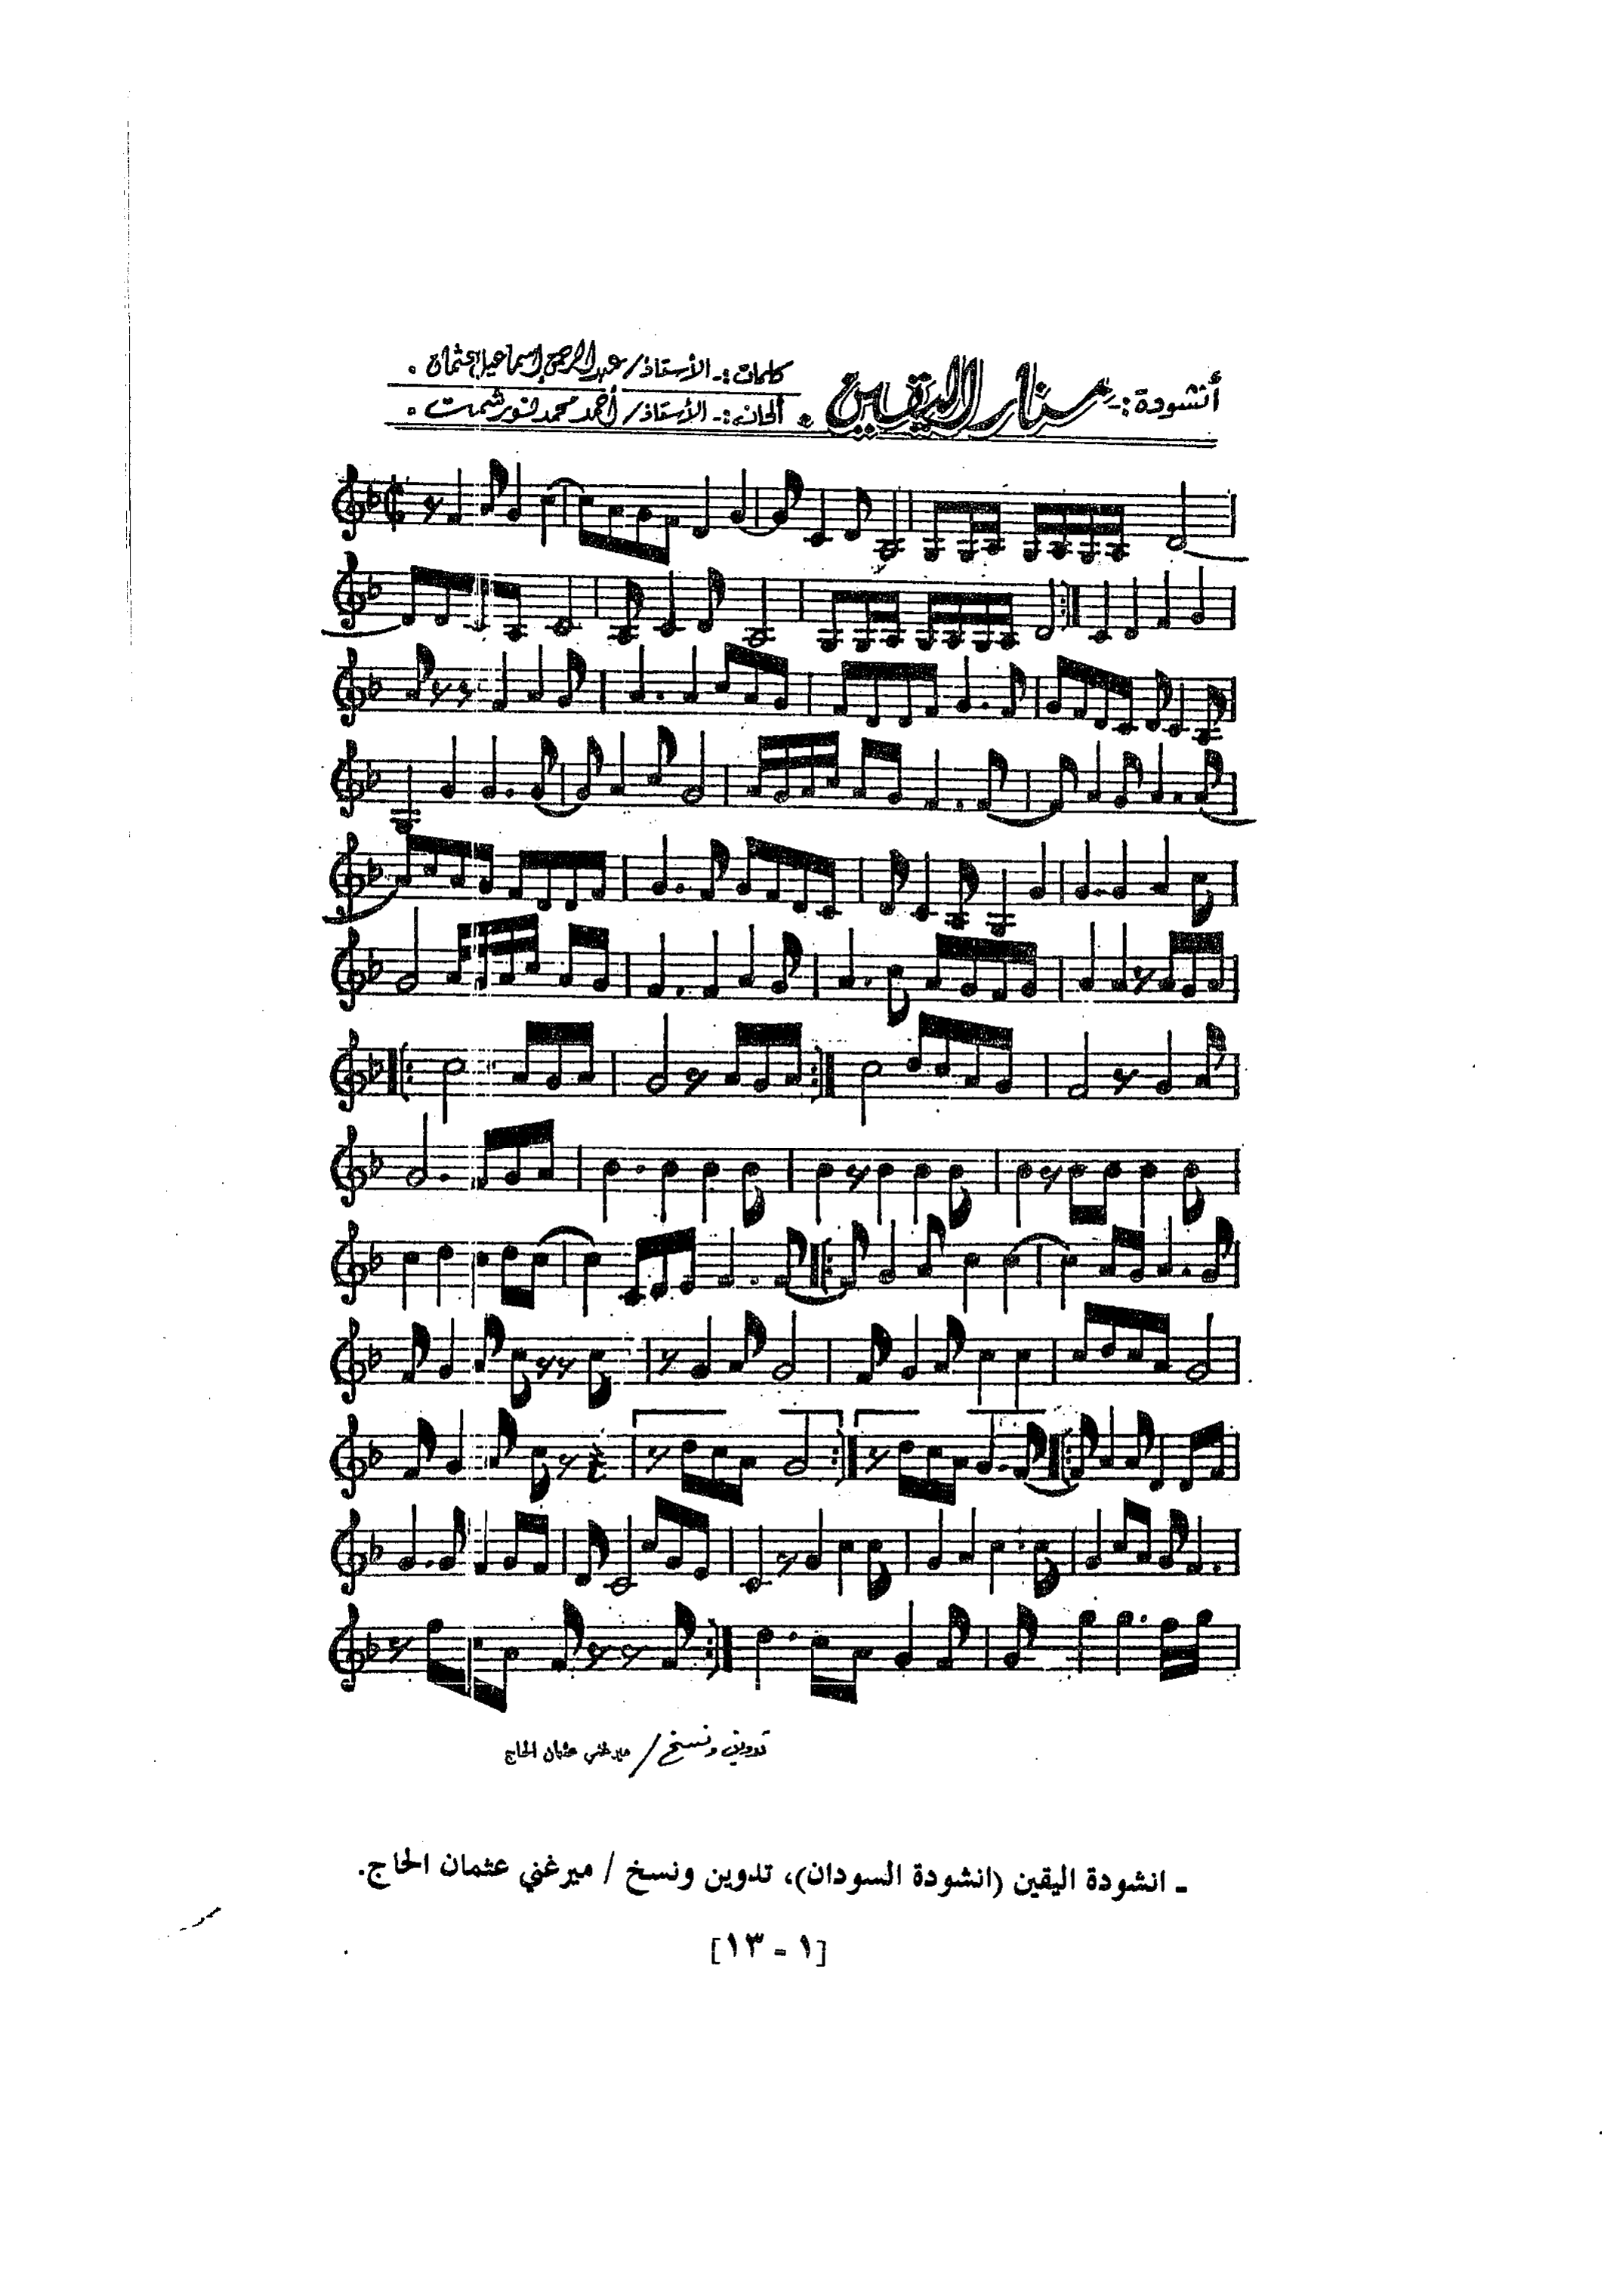 أنشودة :- منار اليقين .
كلمات :- الأستاذ / عبد الرحمن إسماعيل عثمان .
ألحان :- الأستاذ / أحمد محمد
تدوين ونسخ / ميرغني عثمان الحاج
ـ انشودة اليقين (انشودة السودان)، تدوين ونسخ / ميرغني عثمان الحاج.
[١ - ١٣]